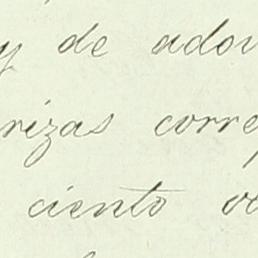 y de ador
rizas corres
ciento oc